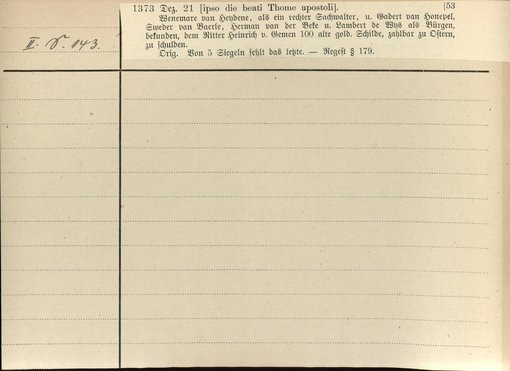 1373 Dez. 21 [ipso die beati Thome apostoli]. [53
Wenemare van Heydene, als ein rechter Sachwalter, u. Gadert van Honepel,
Sweder van Baerle, Herman van der Beke u. Lambert de Wys als Bürgen,
bekunden, dem Ritter Heinrich v. Gemen 100 alte gold. Schilde, zahlbar zu Ostern,
zu schulden.
Orig. Von 5 Siegeln fehlt das letzte. — Regest § 179.
II. 143.